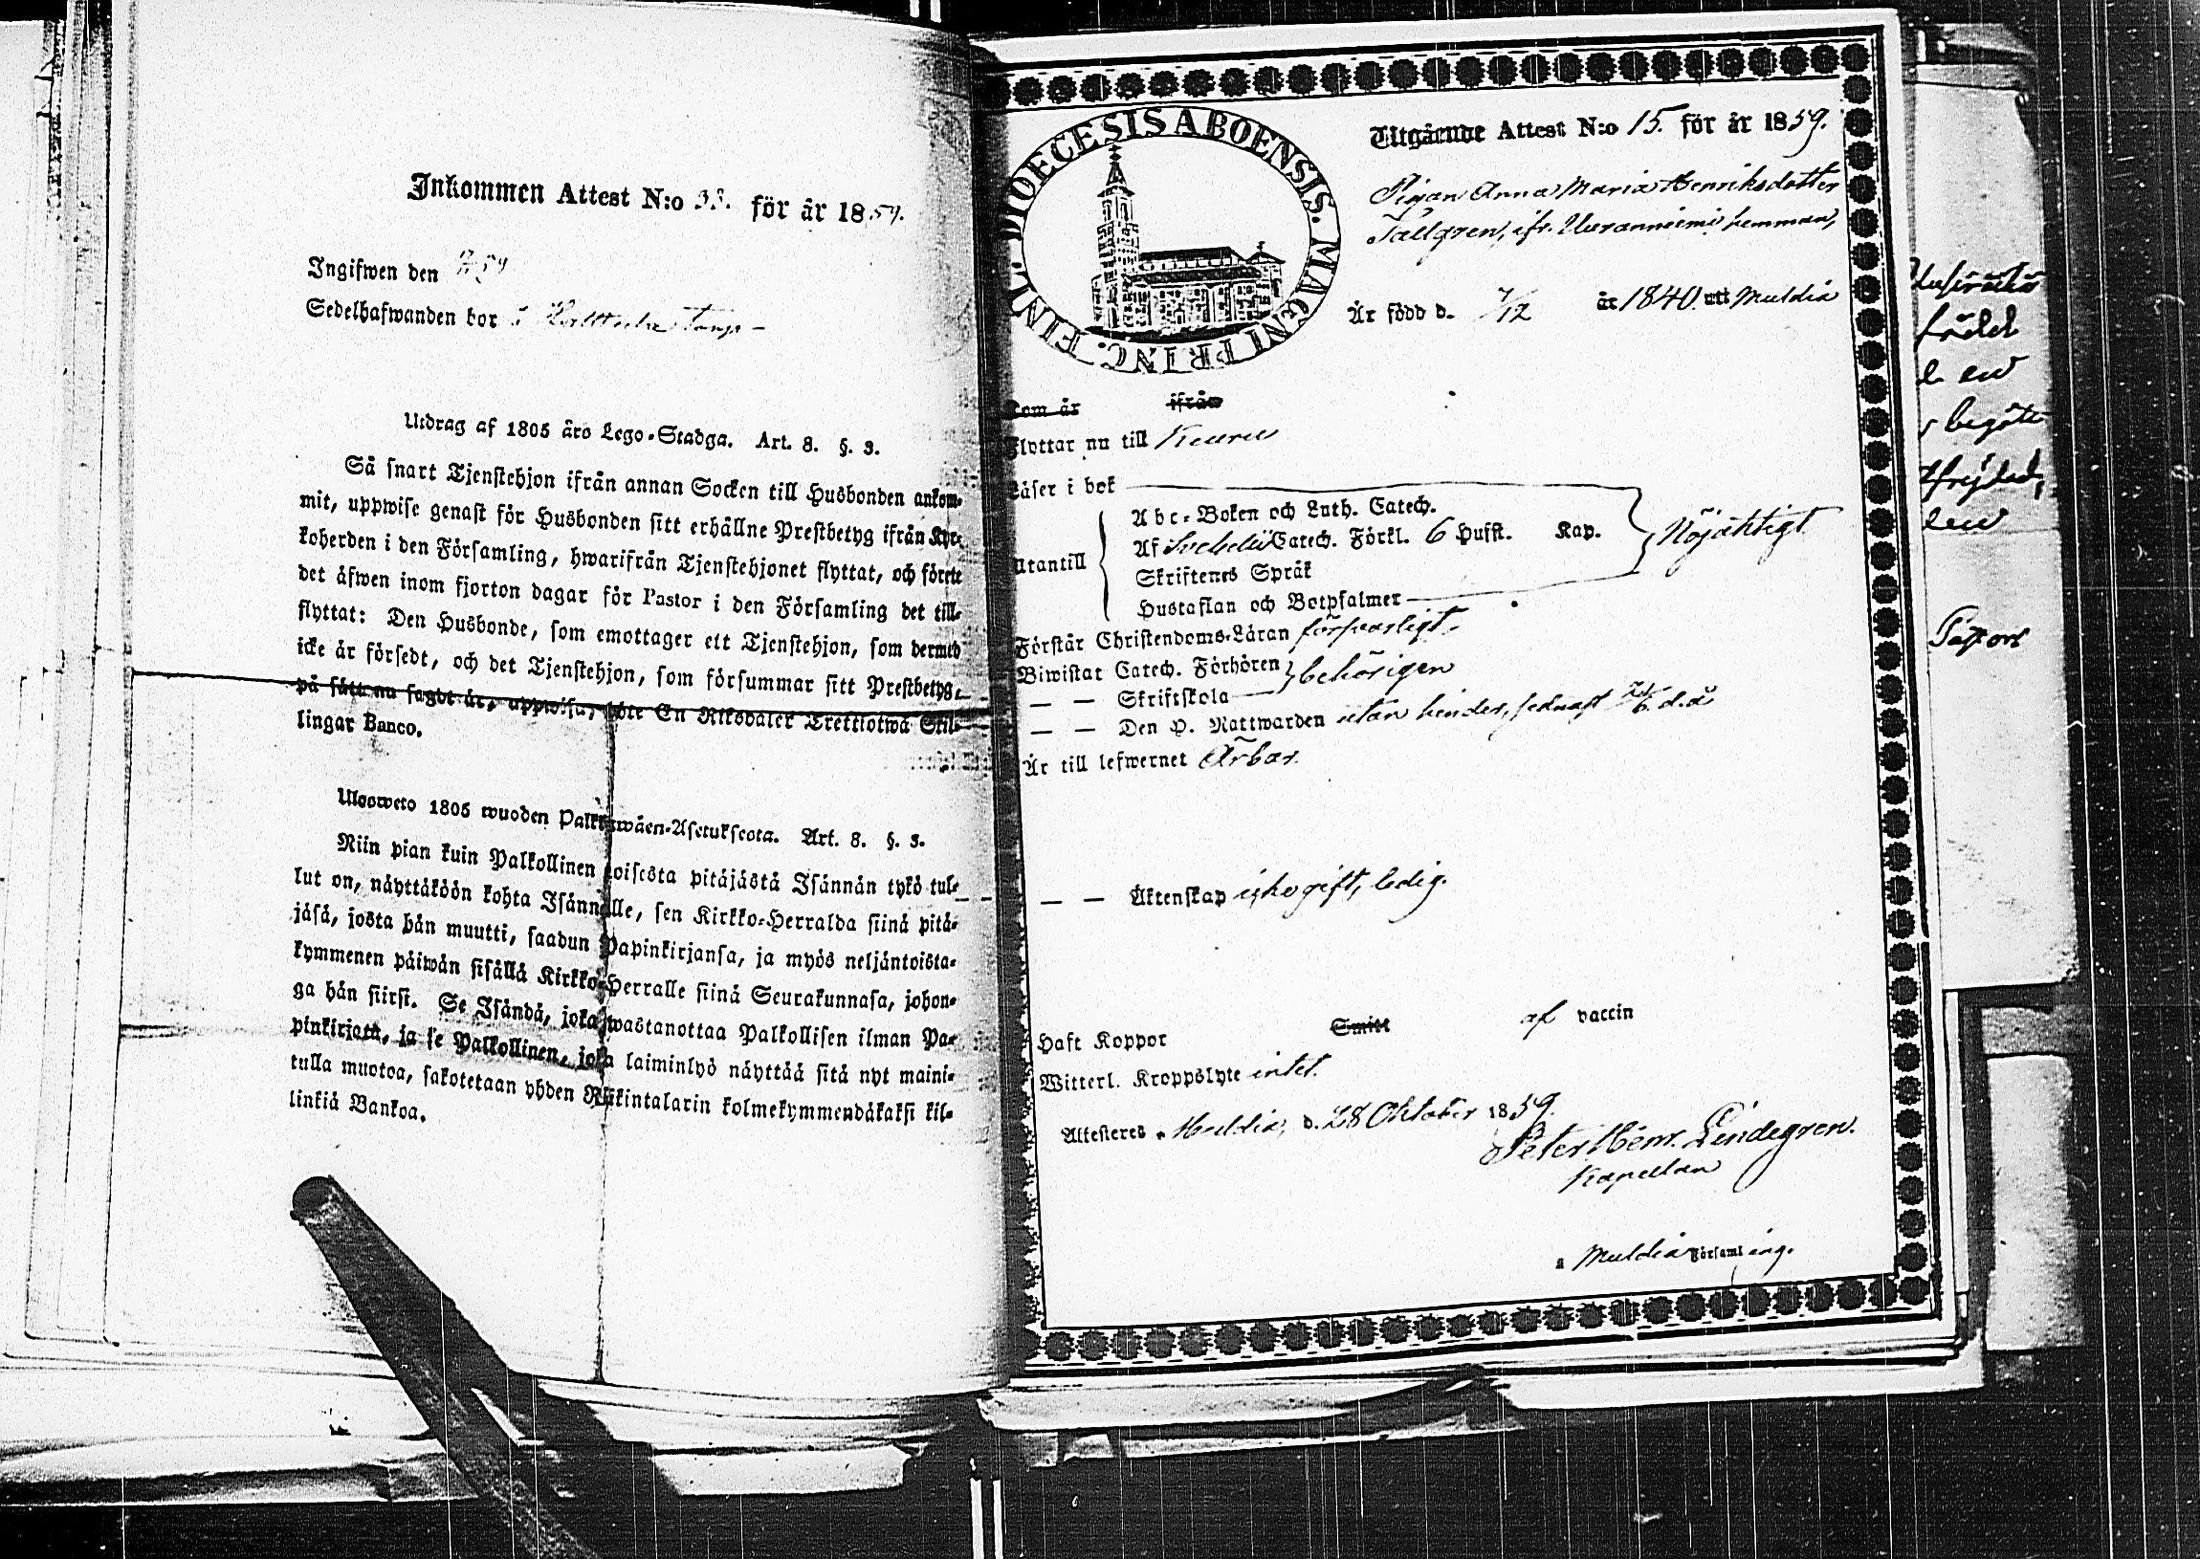 Inkommen Attest N:o 33. för år 1859.
Ingifwen den
Sedelhafwanden bor i
Utdrag af 1805 års Lego-Stadga. Art. 8. §. 3.
Så snart Tjenstehjon ifrån annan Socken till Husbonden ankom-
mit, uppwise genast för Husbonden sitt erhållne Prestbetyg ifrån Kyr-
koherden i den Församling, hwarifrån Tjenstehjonet flyttat, och förete
det äfwen inom fjorton dagar för Pastor i den Församling det till-
flyttat: Den Husbonde, som emottager ett Tjenstehjon, som dermed
icke är försedt, och det Tjenstehjon, som försummar sitt Prestbetyg,
på sätt nu sagdt är, uppwisa, böte En Riksdaler Trettiotwå Skil-
lingar Banco.
Ulosweto 1805 wuoden Palkkawäen-Asetuksesta. Art. 8. §. 3.
Niin pian kuin Palkollinen toisesta pitäjästä Isännän tykö tul-
lut on, näyttäköön kohta Isännälle, sen Kirkko-Herralda siinä pitä-
jäsä, josta hän muutti, saadun Papinkirjansa, ja myös neljäntoista-
kymmenen päiwän sisällä Kirkko-Herralle siinä Seurakunnasa, johon-
ga hän siirsi. Se Isändä, joka wastanottaa Palkollisen ilman Pa-
pinkirjata, ja se Palkollinen, joka laiminlyö näyttää sitä nyt maini-
tulla muotoa, sakotetaan yhden Riikintalarin kolmekymmendäkaksi kil-
linkiä Bankoa.
DIOECESIS ABOENSIS. MAGNI PRINC. FINL.
Utgående Attest N:o 15. för år 1859.
Pigan Anna Maria Henriksdotter
Tallgren, ifr. Uuranniemi hemman,
Är född d. 7/12 år 1840. att Muldia
Kom år ifrån
Flyttar nu till Keuru
Läser i bok
Abc-Boken och Luth. Catech.
Af Svebelii Catech. Förkl. 6 Hufst. Kap. Nöjaktigt
Utantill
Skriftenes Språk
Hustaflan och Botpsalmer
Förstår Christendoms-Läran försvarligt.
Biwistat Catech. Förhören behörigen
— — Skriftskola
— — Den H. Nattwarden utan hinder, sednast d. å
Är till lefwernet Ärbar.
— — Äktenskap icke gift, ledig.
Haft Koppor Smitt af vaccin
Witterl. Kroppslyte intet.
Attesteres, Muldia, d. 28 Oktober 1859.
Peter Henr. Lindegren.
Kapellan
i Muldia Församling.
född
en
Pastor